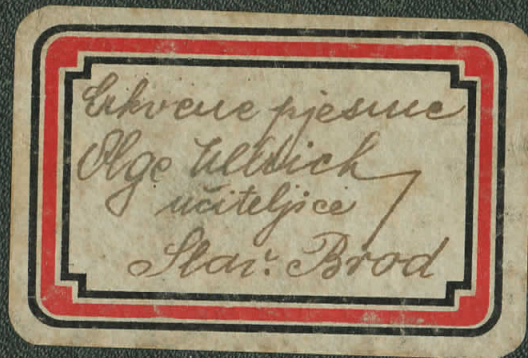 Crkvene pjesme
Olge Ullrich
učiteljice
Slav. Brod